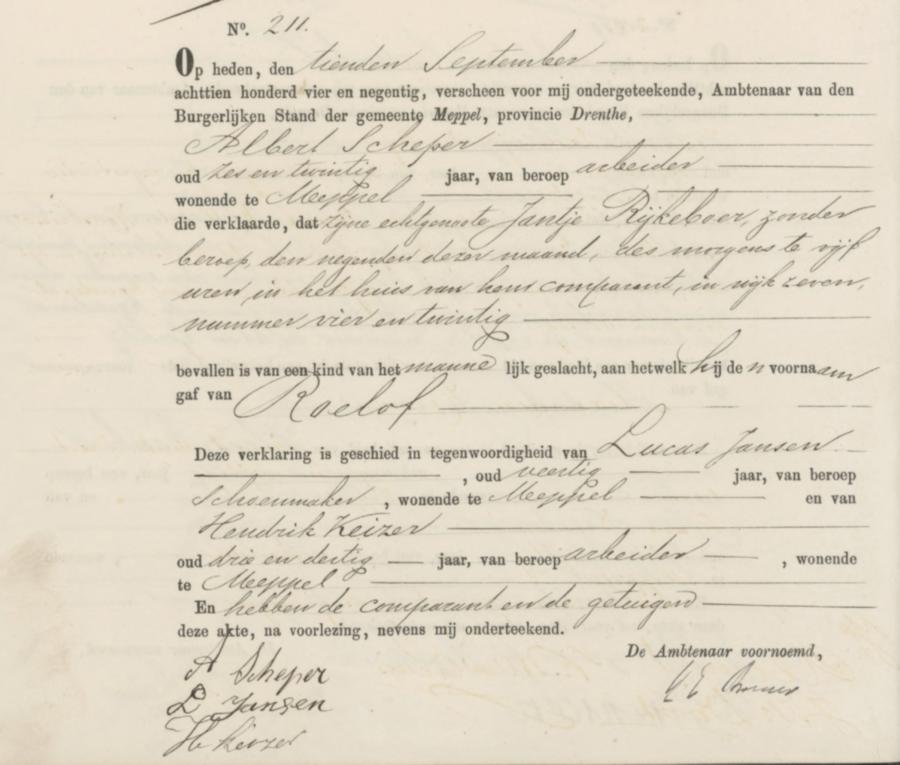 No. 211.
Op heden, den tienden September
achttien honderd vier en negentig, verscheen voor mij ondergeteekende, Ambtenaar van den
Burgerlijken Stand der gemeente Meppel, provincie Drenthe,
Albert Scheper
oud zes en twintig jaar, van beroep arbeider
wonende te Meppel
die verklaarde, dat zijne echtgenoote Jantje Rijkeboer, zonder
beroep, den negenden dezer maand, des morgens te vijf
uren, in het huis van hem comparant, in wijk zeven,
nummer vier en twintig
bevallen is van een kind van het manne lijk geslacht, aan hetwelk hij de n voornaam
gaf van Roelof
Deze verklaring is geschied in tegenwoordigheid van Lucas Jansen
, oud veertig jaar, van beroep
Schoenmaker, wonende te Meppel en van
Hendrik Keizer
oud drie en dertig jaar, van beroep arbeider, wonende
te Meppel
En hebben de comparant en de getuigen
deze akte, na voorlezing, nevens mij onderteekend.
De Ambtenaar voornoemd,
A Scheper
L Jansen
H keizer